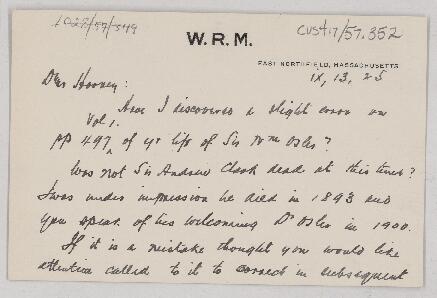 1028/57/349
CUS417/57.352
W.R.M.
EAST NORTHFIELD, MASSACHUSETTS
IX, 13, 25
Dear Harvey:
Have I discovered a slight error on
Vol 1.
pp 497 of yr life of Sir Wm Osler?
Was not Sir Andrew Clark dead at this time?
I was under impression he died in 1893 and
you speak of his welcoming Dr Osler in 1900.
If it is a mistake thought you would like
attention called to it to correct in subsequent